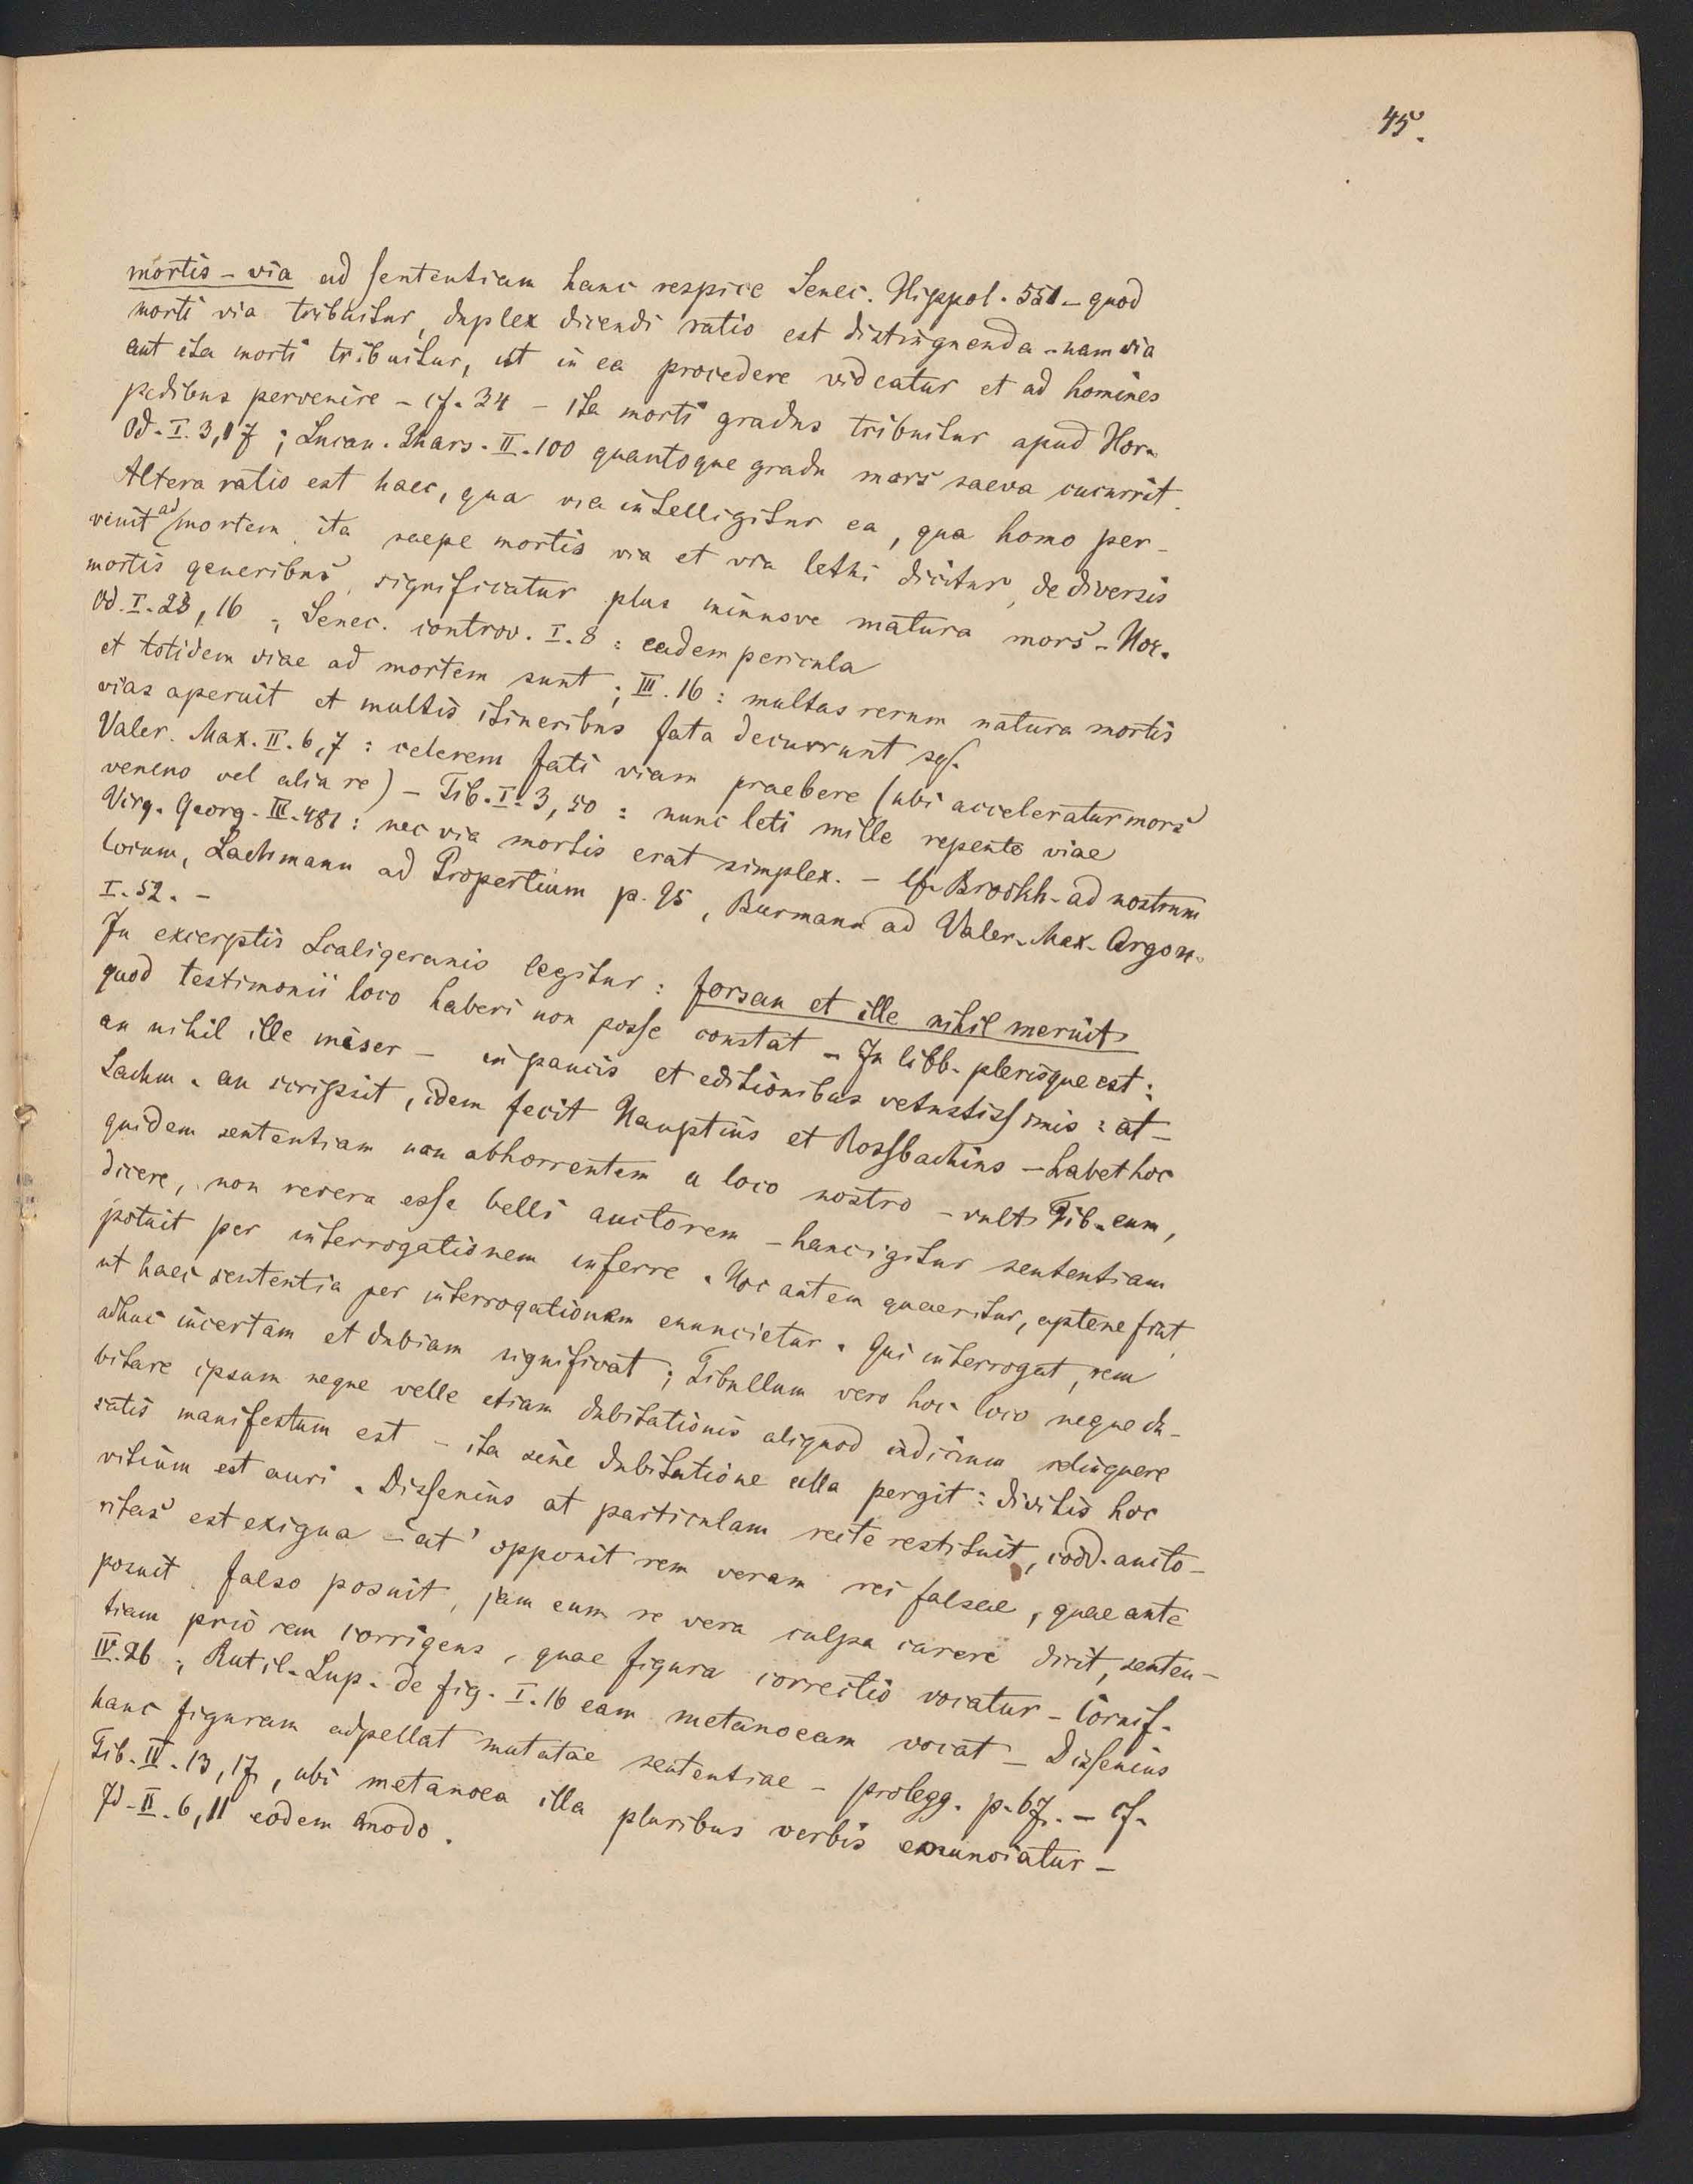 45.
mortis - via ad sententiam hanc respice Senec. Hippol. 551 - quod
morti via tribuitur, duplex dicendi ratio est distinguenda - nam via
aut ita morti tribuitur, ut in ea procedere videatur et ad homines
pedibus pervenire - cf. 34 - ita morti gradus tribuitur apud Hor.
Od. I. 3, 17 ; Lucan. Phars. II. 100 quantoque gradu mors saeva cucurrit.
Altera ratio est haec, qua via intelligitur ea, qua homo per-
venit ad mortem. ita saepe mortis via et via lethi dicitur, de diversis
mortis generibus, significatur plus minusve matura mors - Hor.
Od. I. 28, 16 ; Senec. controv. I. 8 : eadem pericula
et totidem viae ad mortem sunt ; III. 16 : multas rerum natura mortis
vias aperuit et multis itineribus fata decurrunt sq.
Valer. Max. II. 6, 7 : celerem fati viam praebere (ubi acceleratur mors
veneno vel alia re) - Tib. I. 3, 50 : nunc leti mille repente viae
Virg. Georg. III. 481 : nec via mortis erat simplex. - cf. Broukh. ad nostrum
locum, Lachmann ad Propertium p. 95, Burmann ad Valer. Max. Argon.
I. 52. -
In excerptis Scaligeranis legitur : forsan et ille nihil meruit
quod testimonii loco haberi non posse constat - In libb. plerisque est :
an nihil ille miser - in paucis et editionibus vetustissimis : at -
Lachm. an scripsit, idem fecit Hauptius et Rossbachius - habet hoc
quidem sententiam non abhorrentem a loco nostro - vult Tib. eum,
dicere, non revera esse belli auctorem - hanc igitur sententiam
potuit per interrogationem inferre. Hoc autem quaeritur, aptene fiat,
ut haec sententia per interrogationem enuncietur. Qui interrogat, rem
adhuc incertam et dubiam significat ; Tibullum vero hoc loco neque du-
bitare ipsum neque velle etiam dubitationis aliquod indicium relinquere
satis manifestum est - ita sine dubitatione ulla pergit : divitis hoc
vitium est auri. Dissenius at particulam recte restituit, codd. aucto-
ritas est exigua - 'at' opponit rem veram rei falsae, quae ante
posuit. falso posuit, jam eum re vera culpa carere dicit, senten-
tiam priorem corrigens, quae figura correctio vocatur - Cornif.
IV. 26 ; Rutil. Lup. de fig. I. 16 eam metanoeam vocat - Dissenius
hanc figuram adpellat mutatae sententiae - prolegg. p. 67. - cf.
Tib. IV. 13, 17, ubi metanoea illa pluribus verbis enunciatur -
Id. II. 6, 11 eodem modo.